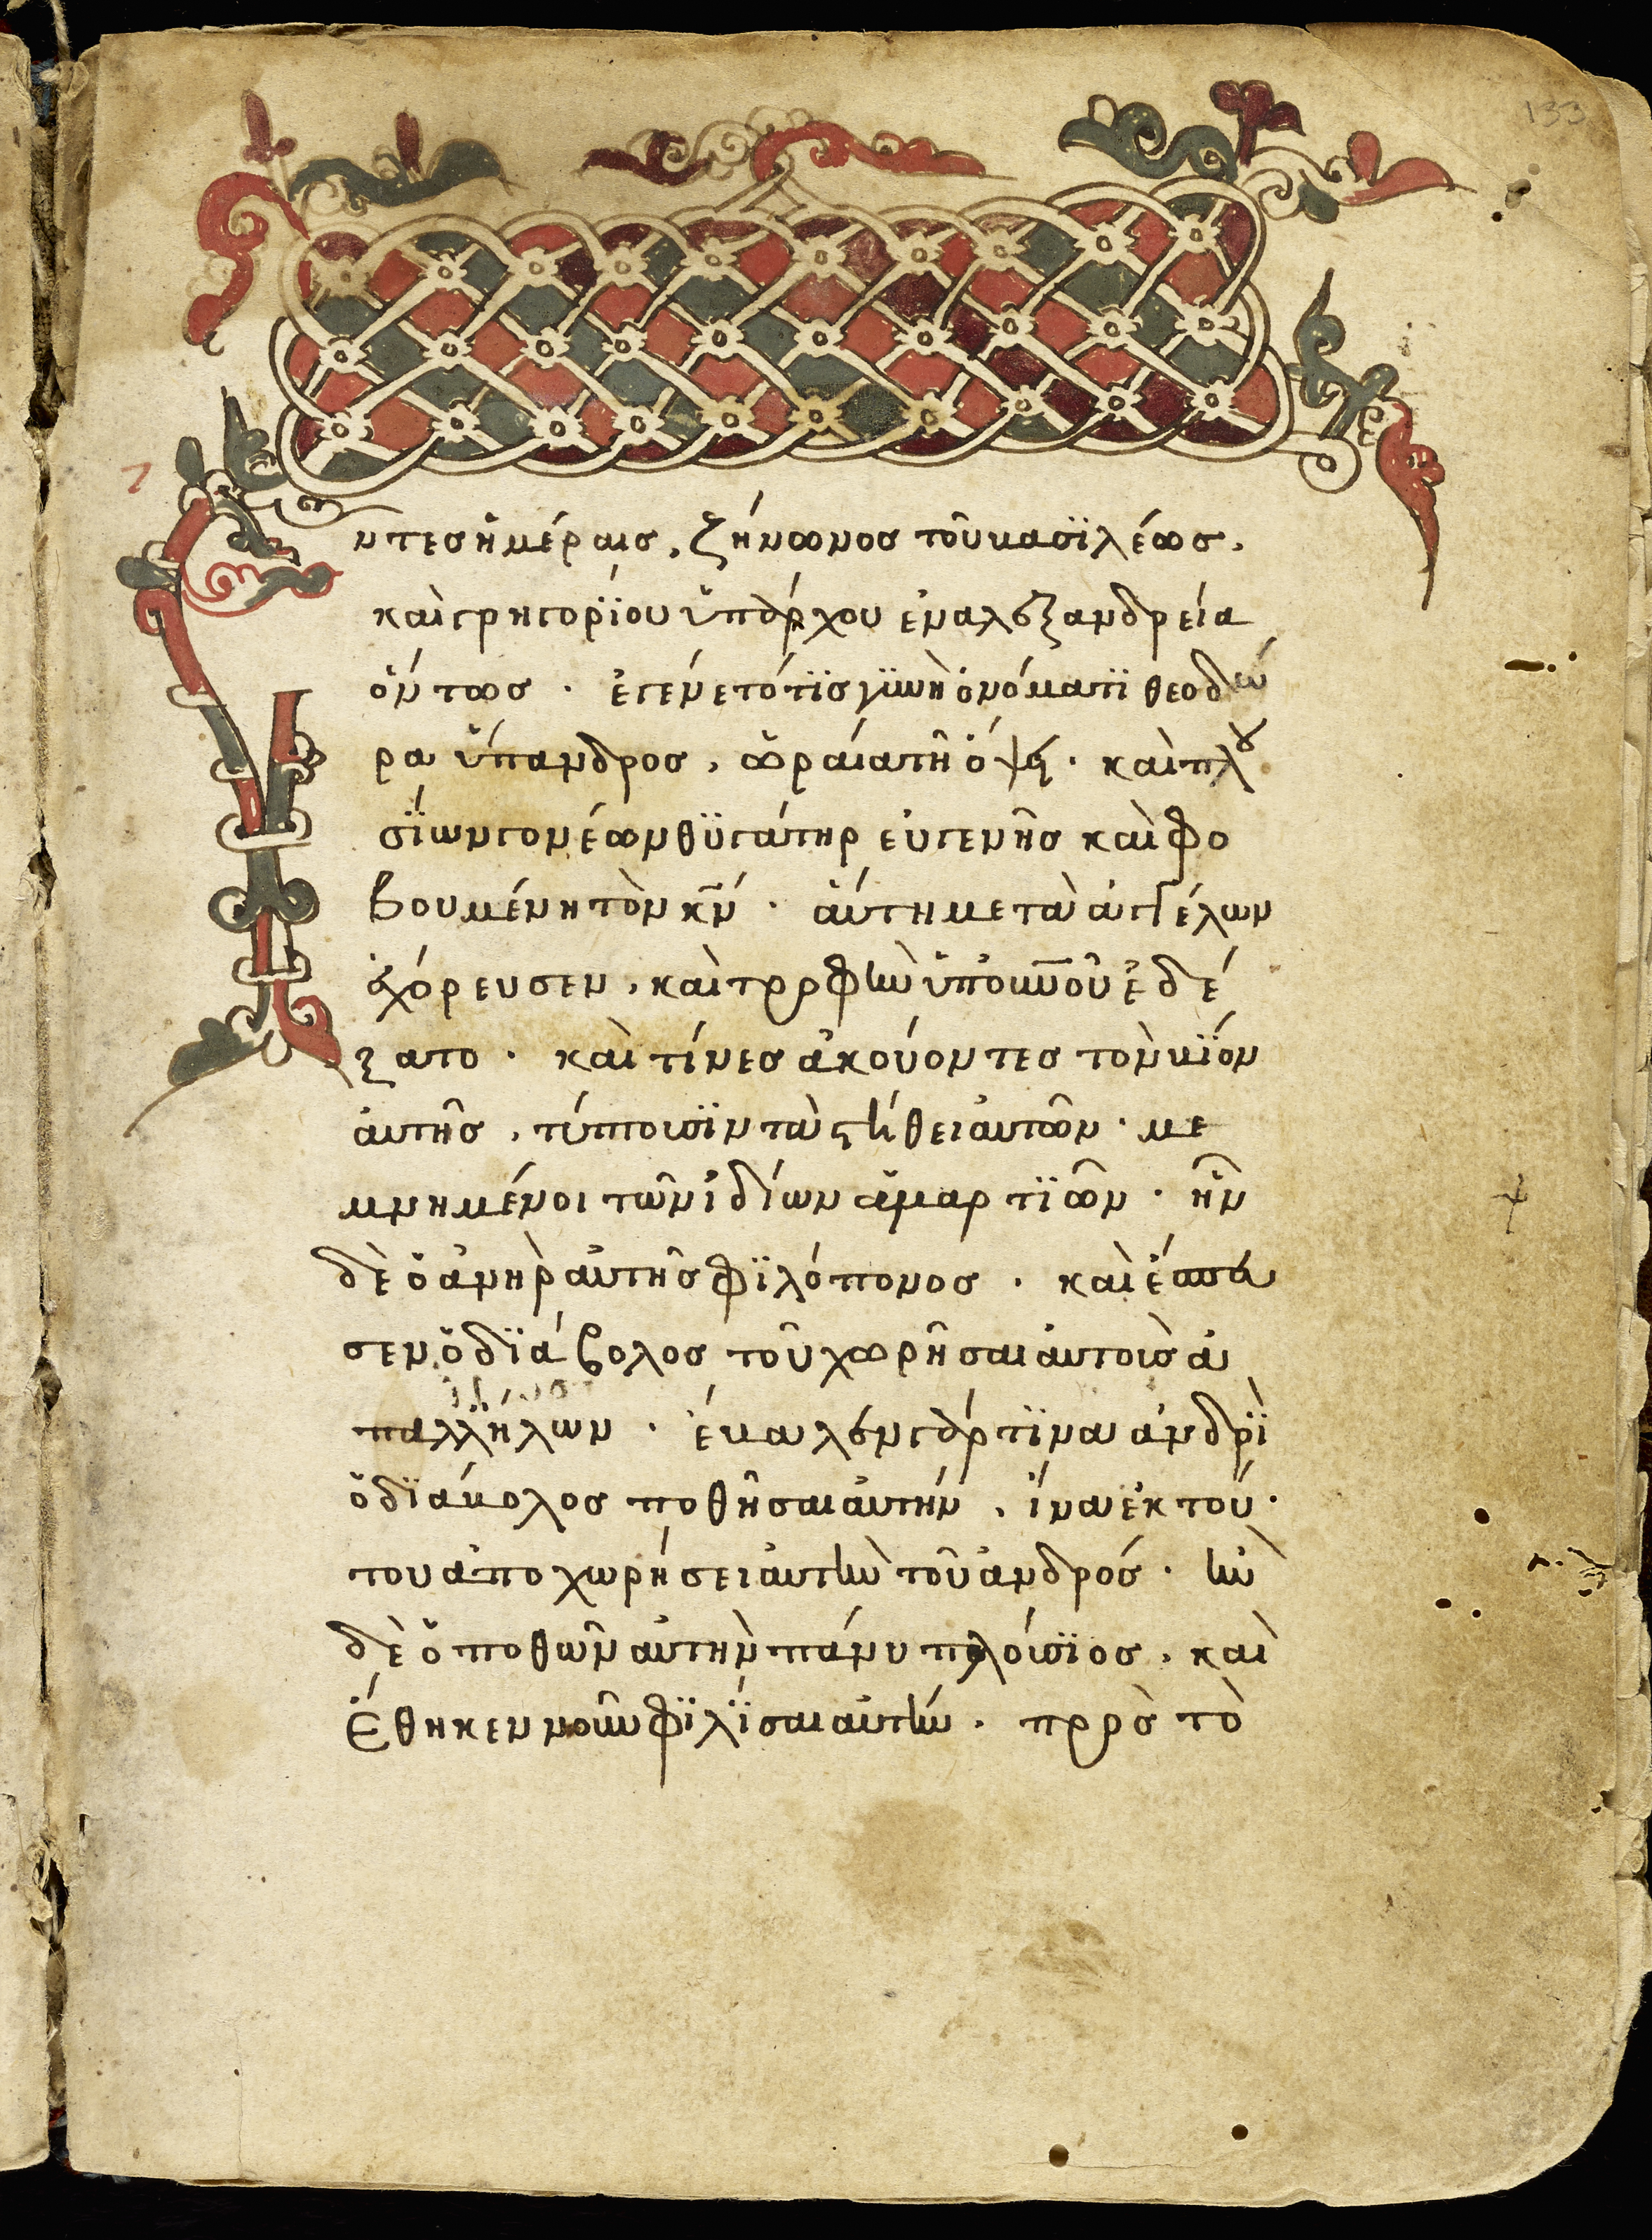 133
ντες ἡμέραις, ζήνωνος τοῦ βασϊλέως,
καὶ γρηγορΐου ὑπάρχου ἐν αλεξανδρεία
ὄντως · ἐγένετό τϊς γϋνὴ ὀνόματϊ θεοδώ
ρα ὕπανδρος, ὡραία τῆ ὄψει · καὶ πλου
σΐων γονέων θϋγάτηρ εὐγενῆς καὶ φο
βουμένη τὸν κν̅ · αὕτη μετὰ ἀγγέλων
ἐχόρευσεν, καὶ τροφὴν ὑπὸ ουνοῦ ἐδέ
ξατο · καὶ τίνες ἀκούοντες τὸν βΐον
ἀυτῆς, τύπτουσϊν τὰ στήθει ἀυτῶν · με
μνημένοι τῶν ἰδίων ἁμαρτϊῶν · ἦν
δὲ ὁ ἀνὴρ ἀυτῆς φϊλόπονος · καὶ ἔσπα
σεν ὁ δϊάβολος τοῦ χωρῆσαι ἀυτοὺς ἀ
παλλήλων · ἔβαλεν γάρ τϊνα ἀνδρῒ
ὁ δϊάβολος ποθῆσαι ἀυτήν, ἵνα ἐκ τού
του ἀποχωρήσει ἀυτὴν τοῦ ἀνδρός · ἦν
δὲ ὁ ποθῶν ἀυτὴν πάνυ πλούσϊος, καὶ
ἔθηκεν νοῦν φϊλΐσαι ἀυτήν · πρὸς τὸ